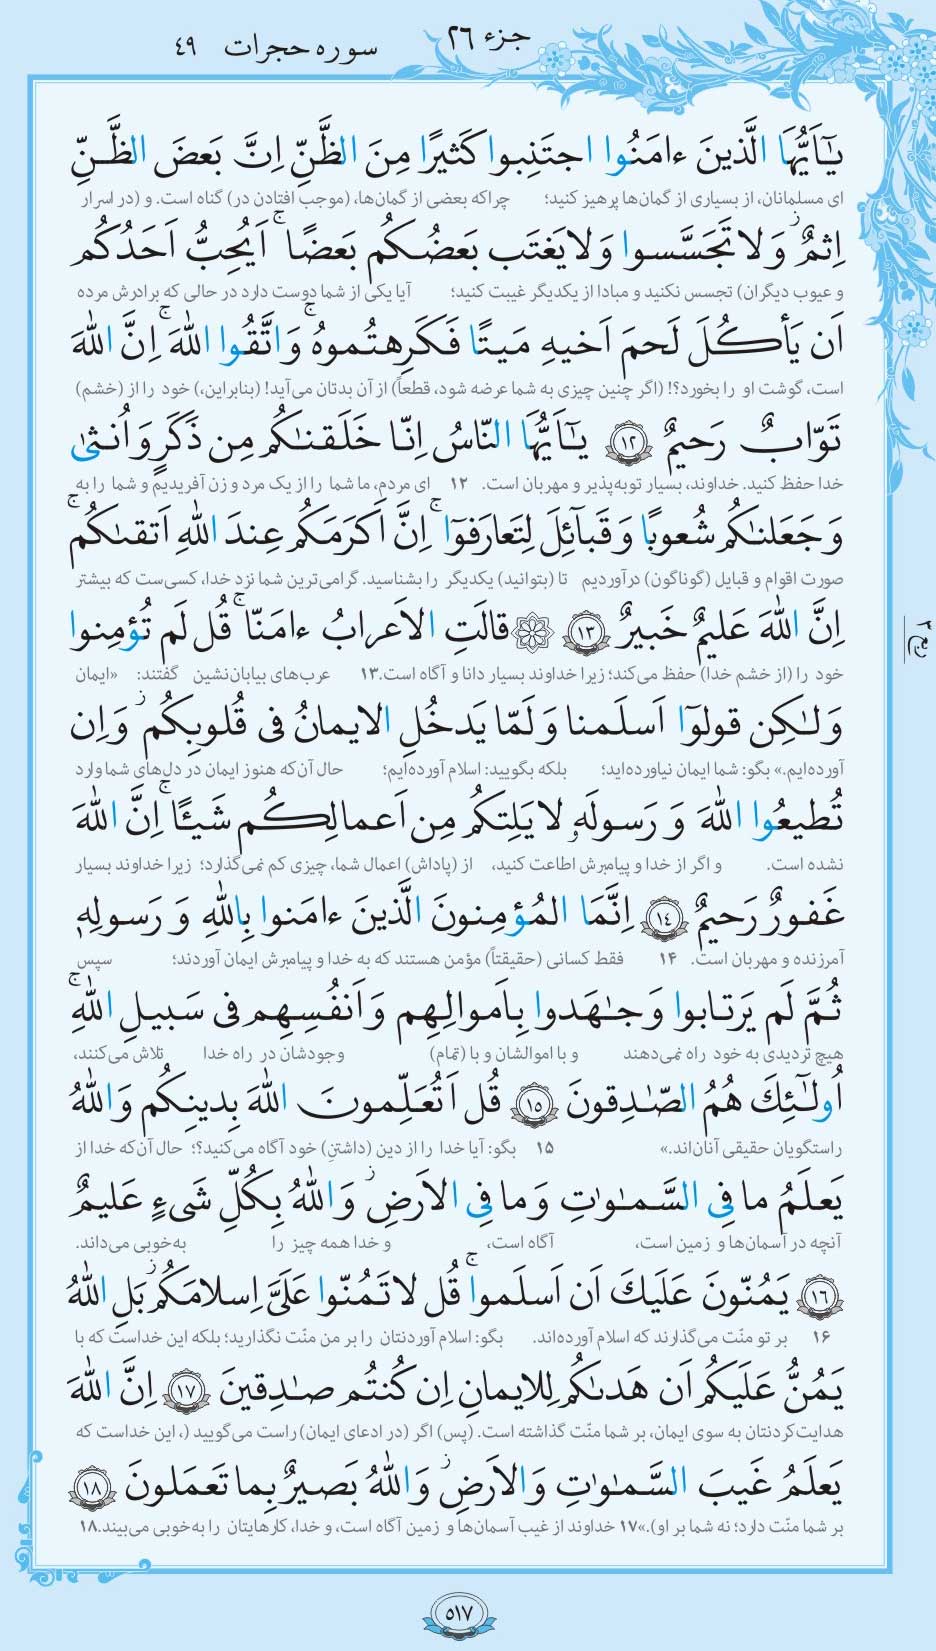 جزء ۲۶ سوره حجرات ۴۹
یـٰۤاَیُّهَا الَّذینَ ءامَنُوا اجتَنِبوا کَثیرًا مِنَ الظَّنِّ اِنَّ بَعضَ الظَّـنِّ
ای مسلمانان، از بسیاری از گمان‌ها پرهیز کنید؛ چراکه بعضی از گمان‌ها، (موجب افتادن در) گناه است. و (در اسرار
اِثمٌ ۖ وَلا تَجَسَّسوا وَلا یَغتَب بَعضُکُم بَعضًا ۚ اَیُحِبُّ اَحَدُکُم
و عیوب دیگران) تجسس نکنید و مبادا از یکدیگر غیبت کنید؛ آیا یکی از شما دوست دارد در حالی که برادرش مرده
اَن یَأکُلَ لَحمَ اَخیهِ مَیتًا فَکَرِهتُموهُ ۚ وَاتَّقُوا اللّٰهَ ۚ اِنَّ اللّٰهَ
است، گوشت او را بخورد؟! (اگر چنین چیزی به شما عرضه شود، قطعاً) از آن بدتان می‌آید! (بنابراین،) خود را از (خشم)
تَوّابٌ رَحیمٌ ۱۲ یـٰۤاَیُّهَا النّاسُ اِنّا خَلَقنـٰکُم مِن ذَکَرٍ وَاُنثیٰ
خدا حفظ کنید. خداوند، بسیار توبه‌پذیر و مهربان است. ۱۲ ای مردم، ما شما را از یک مرد و زن آفریدیم و شما را به
وَجَعَلنـٰکُم شُعوبًا وَقَبآئِلَ لِتَعارَفوٓا ۚ اِنَّ اَکرَمَکُم عِندَ اللّٰهِ اَتقىٰکُم ۚ
صورت اقوام و قبایل (گوناگون) درآوردیم تا (بتوانید) یکدیگر را بشناسید. گرامی‌ترین شما نزد خدا، کسی‌ست که بیشتر
اِنَّ اللّٰهَ عَلیمٌ خَبیرٌ ۱۳ ۞ قالَتِ الاَعرابُ ءامَنّا ۚ قُل لَم تُؤمِنوا
خود را (از خشم خدا) حفظ می‌کند؛ زیرا خداوند بسیار دانا و آگاه است.۱۳ عرب‌های بیابان‌نشین گفتند: «ایمان
ربع ۲
وَلـٰکِن قولوٓا اَسلَمنا وَلَمّا یَدخُلِ الایمانُ فی قُلوبِکُم ۖ وَاِن
آورده‌ایم.» بگو: شما ایمان نیاورده‌اید؛ بلکه بگویید: اسلام آورده‌ایم؛ حال آن‌که هنوز ایمان در دل‌های شما وارد
تُطیعُوا اللّٰهَ وَ رَسولَهٗ لا یَلِتکُم مِن اَعمالِکُم شَیئًا ۚ اِنَّ اللّٰهَ
نشده است. و اگر از خدا و پیامبرش اطاعت کنید، از (پاداش) اعمال شما، چیزی کم نمی‌گذارد؛ زیرا خداوند بسیار
غَفورٌ رَحیمٌ ۱۴ اِنَّمَا المُؤمِنونَ الَّذینَ ءامَنوا بِاللّٰهِ وَ رَسولِهٖ
آمرزنده و مهربان است. ۱۴ فقط کسانی (حقیقتاً) مؤمن هستند که به خدا و پیامبرش ایمان آوردند؛ سپس
ثُمَّ لَم یَرتابوا وَجـٰهَدوا بِاَموالِهِم وَاَنفُسِهِم فی سَبیلِ اللّٰهِ ۚ
هیچ تردیدی به خود راه نمی‌دهند و با اموالشان و با (تمام) وجودشان در راه خدا تلاش می‌کنند،
اُولـٰٓئِکَ هُمُ الصّـٰدِقونَ ۱۵ قُل اَتُعَلِّمونَ اللّٰهَ بِدینِکُم وَاللّٰهُ
راستگویان حقیقی آنان‌اند.» ۱۵ بگو: آیا خدا را از دین (داشتنِ) خود آگاه می‌کنید؟؛ حال آن‌که خدا از
یَعلَمُ ما فِی السَّمـٰوٰتِ وَما فِی الاَرضِ ۖ وَاللّٰهُ بِکُلِّ شَیءٍ عَلیمٌ
آنچه در آسمان‌ها و زمین است، آگاه است، و خدا همه چیز را به‌خوبی می‌داند.
۱۶ یَمُنّونَ عَلَیکَ اَن اَسلَموا ۚ قُل لا تَمُنّوا عَلَیَّ اِسلامَکُم ۖ بَلِ اللّٰهُ
۱۶ بر تو منّت می‌گذارند که اسلام آورده‌اند. بگو: اسلام آوردنتان را بر من منّت نگذارید؛ بلکه این خداست که با
یَمُنُّ عَلَیکُم اَن هَدىٰکُم لِلایمانِ اِن کُنتُم صـٰدِقینَ ۱۷ اِنَّ اللّٰهَ
هدایت‌کردنتان به سوی ایمان، بر شما منّت گذاشته است. (پس) اگر (در ادعای ایمان) راست می‌گویید (، این خداست که
یَعلَمُ غَیبَ السَّمـٰوٰتِ وَالاَرضِ ۖ وَاللّٰهُ بَصیرٌ بِما تَعمَلونَ ۱۸
بر شما منّت دارد؛ نه شما بر او).»۱۷ خداوند از غیب آسمان‌ها و زمین آگاه است، و خدا، کارهایتان را به‌خوبی می‌بیند.۱۸
۵۱۷